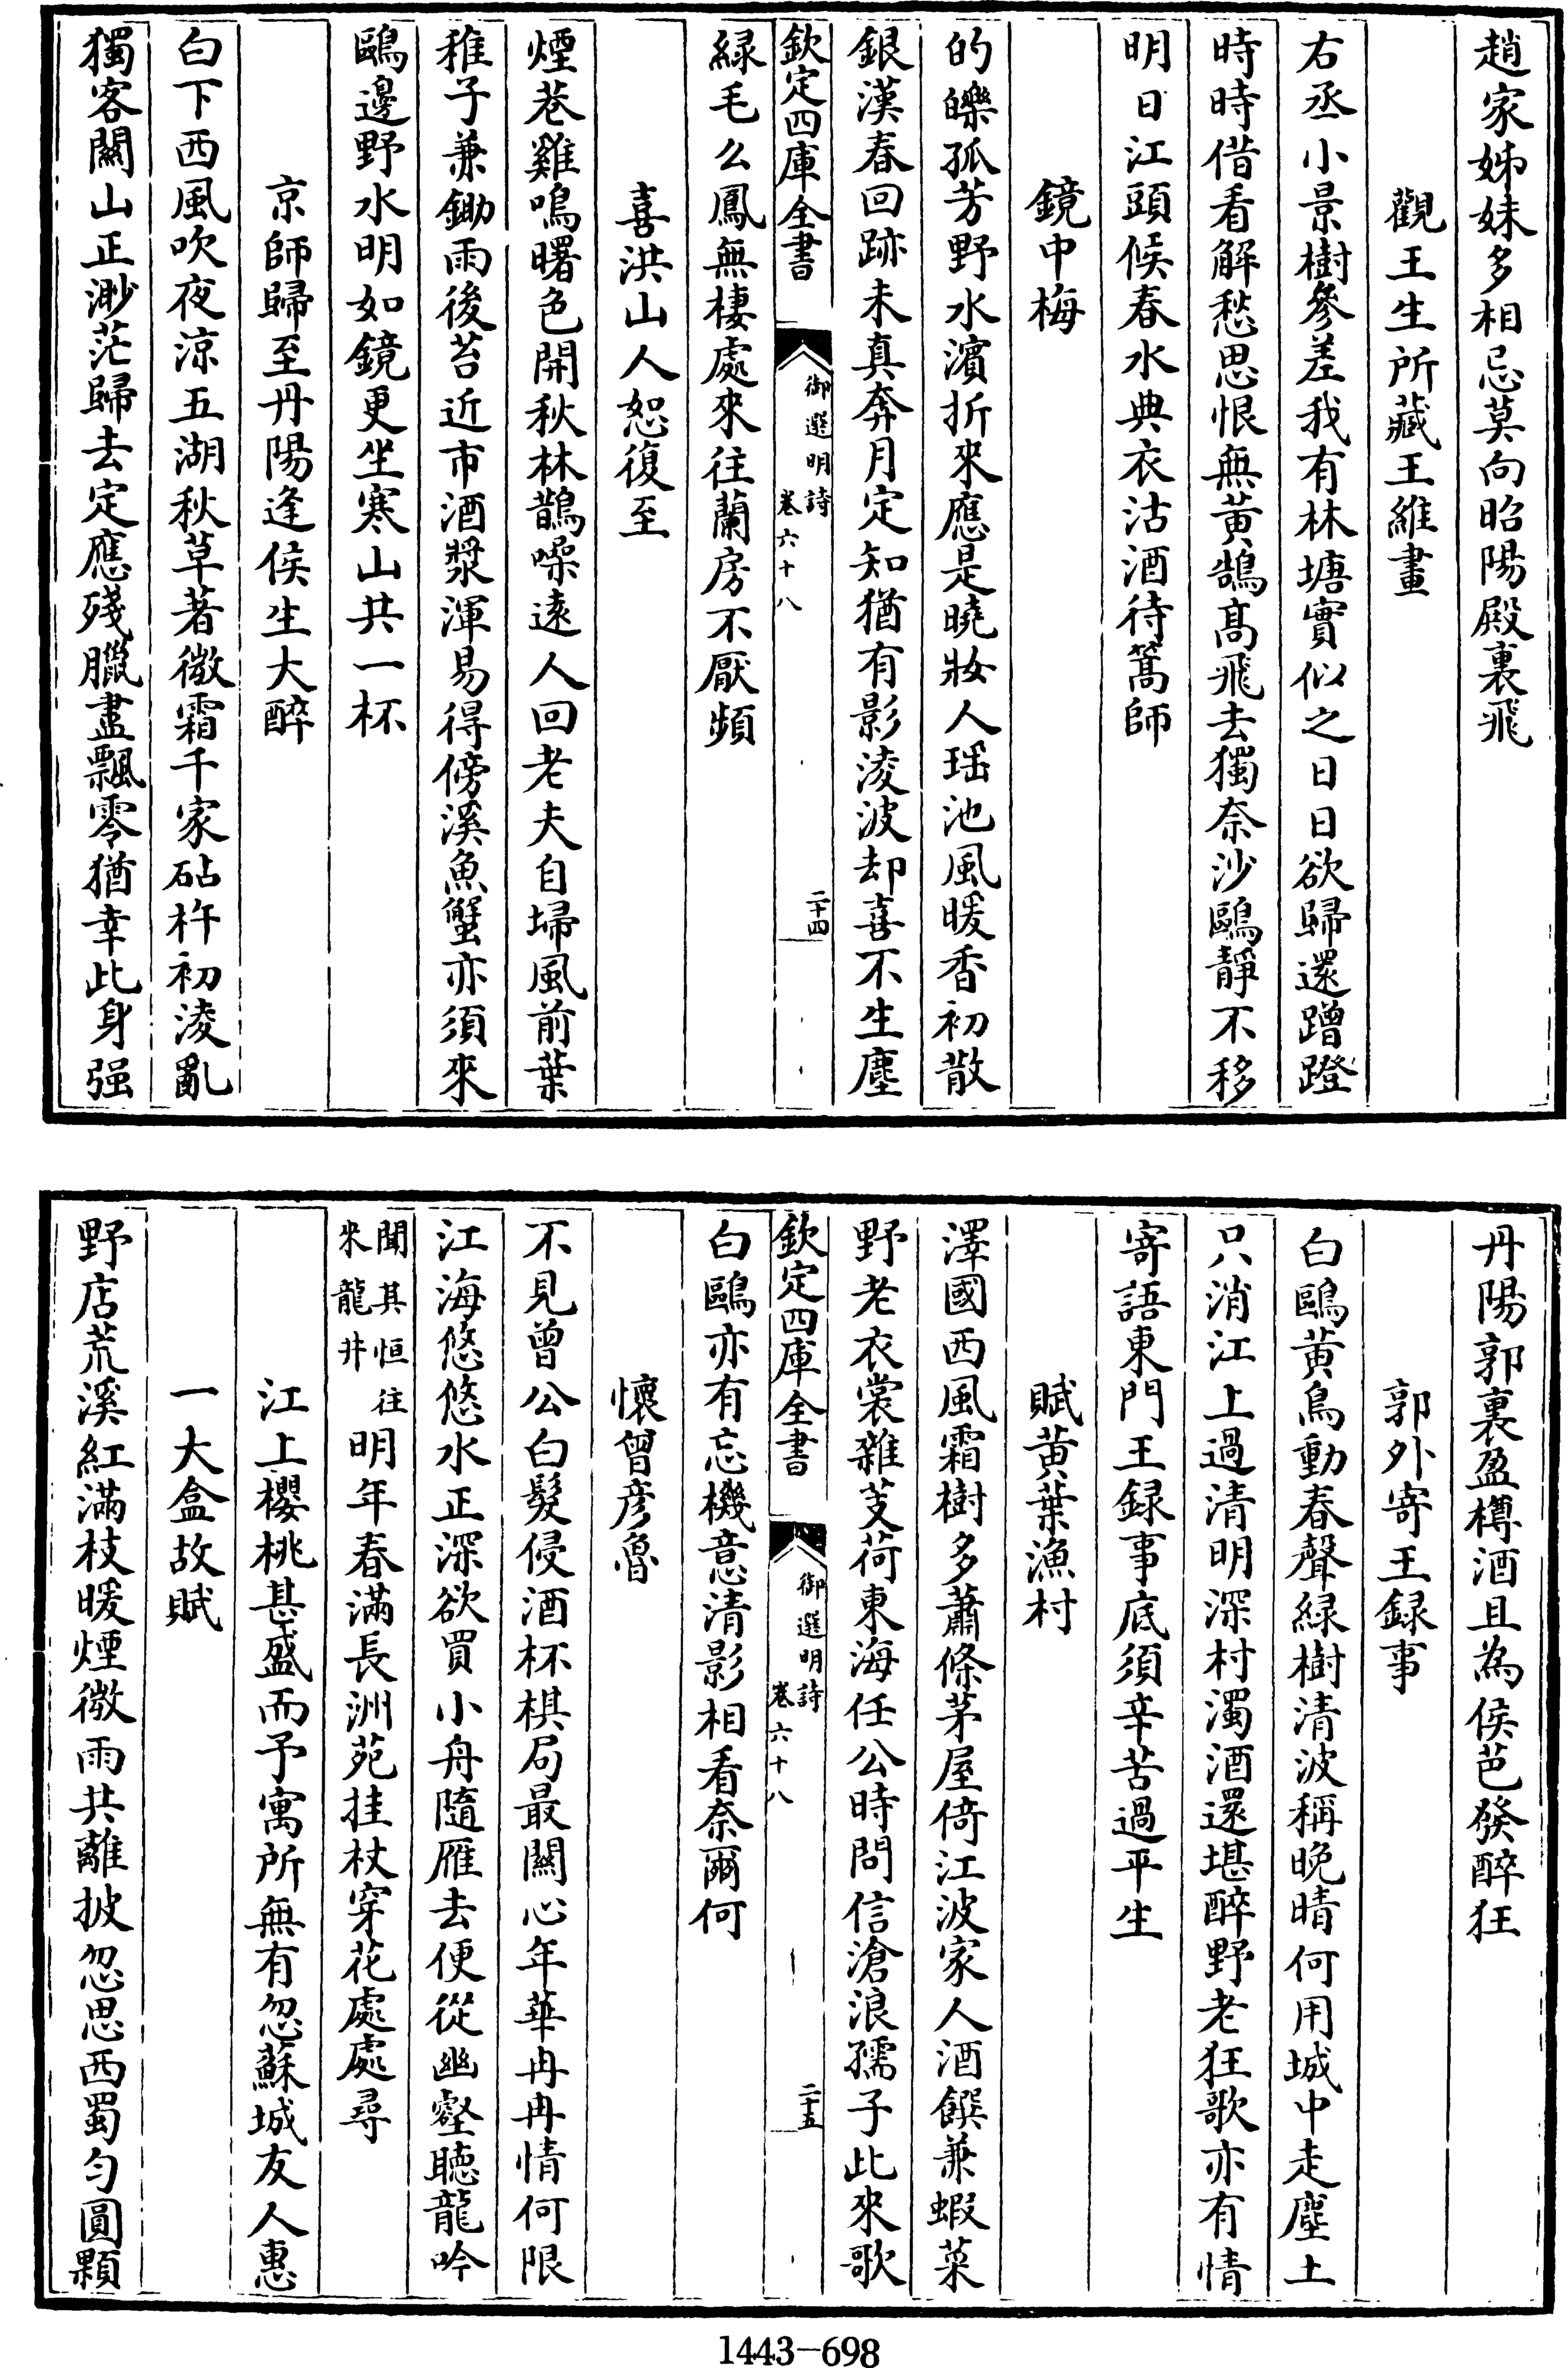 趙家姊妹多相忌莫向昭陽殿裏飛
觀王生所藏王維畫
右丞小景樹參差我有林塘實似之日日欲歸還蹭蹬
時時借看解愁思恨無黄鵠髙飛去獨奈沙鷗靜不移
明日江頭候春水典衣沽酒待篙師
鏡中梅
的皪孤芳野水濱折來應是曉妝人瑶池風暖香初散
銀漢春回跡未真奔月定知猶有影淩波却喜不生塵
欽定四庫全書
御選明詩
卷六十八
二十四
緑毛么鳳無棲處來往蘭房不厭頻
喜洪山人恕復至
煙巷雞鳴曙色開秋林鵲噪逺人回老夫自埽風前葉
稚子兼鋤雨後苔近市酒漿渾易得傍溪魚蟹亦須來
鷗邊野水明如鏡更坐寒山共一杯
京師歸至丹陽逢侯生大醉
白下西風吹夜涼五湖秋草著微霜千家砧杵初淩亂
獨客關山正渺茫歸去定應殘臘盡飄零猶幸此身强
丹陽郭裏盈樽酒且為侯芭發醉狂
郭外寄王録事
白鷗黄鳥動春聲緑樹清波稱晚晴何用城中走塵土
只消江上過清明深村濁酒還堪醉野老狂歌亦有情
寄語東門王録事底須辛苦過平生
賦黄葉漁村
澤國西風霜樹多蕭條茅屋倚江波家人酒饌兼蝦菜
野老衣裳雜芰荷東海任公時問信滄浪孺子此來歌
欽定四庫全書
御選明詩
卷六十八
二十五
白鷗亦有忘機意清影相看奈爾何
懷曾彦魯
不見曾公白髮侵酒杯棋局最關心年華冉冉情何限
江海悠悠水正深欲買小舟隨雁去便從幽壑聽龍吟
聞其恒往
來龍井
明年春滿長洲苑挂杖穿花處處尋
江上櫻桃甚盛而予寓所無有忽蘇城友人惠
一大盒故賦
野店荒溪紅滿枝暖煙微雨共離披忽思西蜀勻圓顆
1443-698